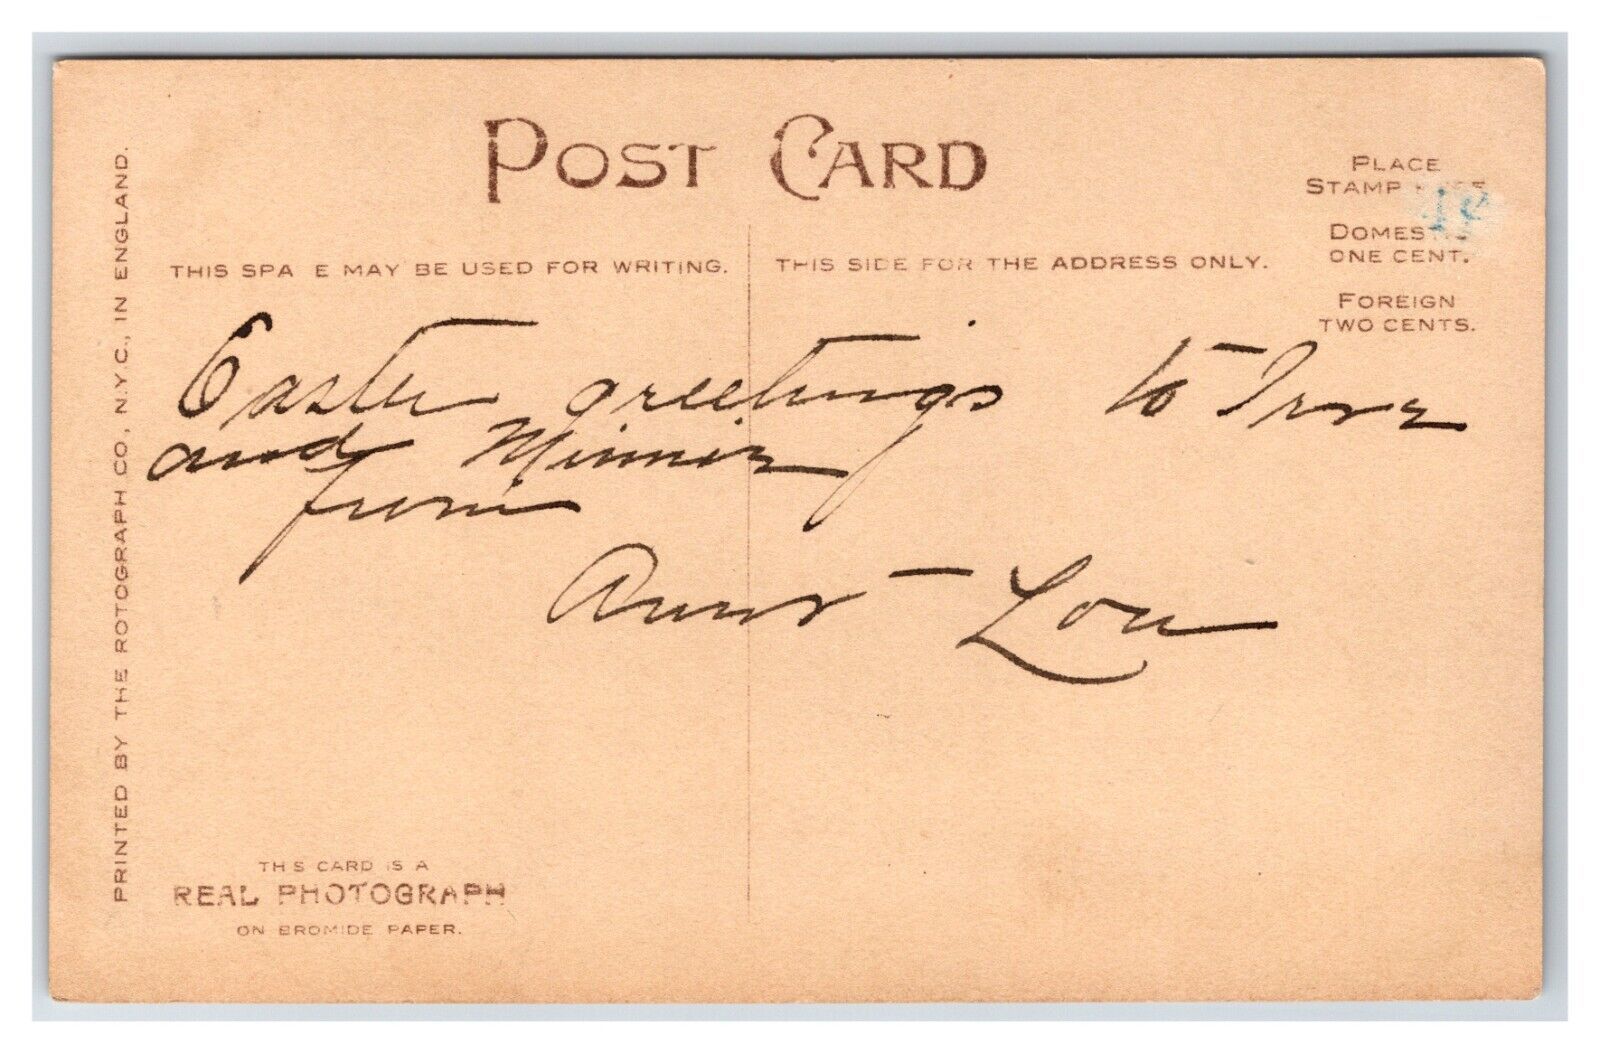 POST CARD
PLACE
STAMP
DOMES
ONE CENT.
FOREIGN
TWO CENTS.
THIS SPA E MAY BE USED FOR WRITING.
THIS SIDE FOR THE ADDRESS ONLY.
Easter greetings to
and Minnie
from
Aunt Lou
PRINTED BY THE ROTOGRAPH CO., N.Y.C., IN ENGLAND.
TH S CARD IS A
REAL PHOTOGRAPH
ON BROMIDE PAPER.